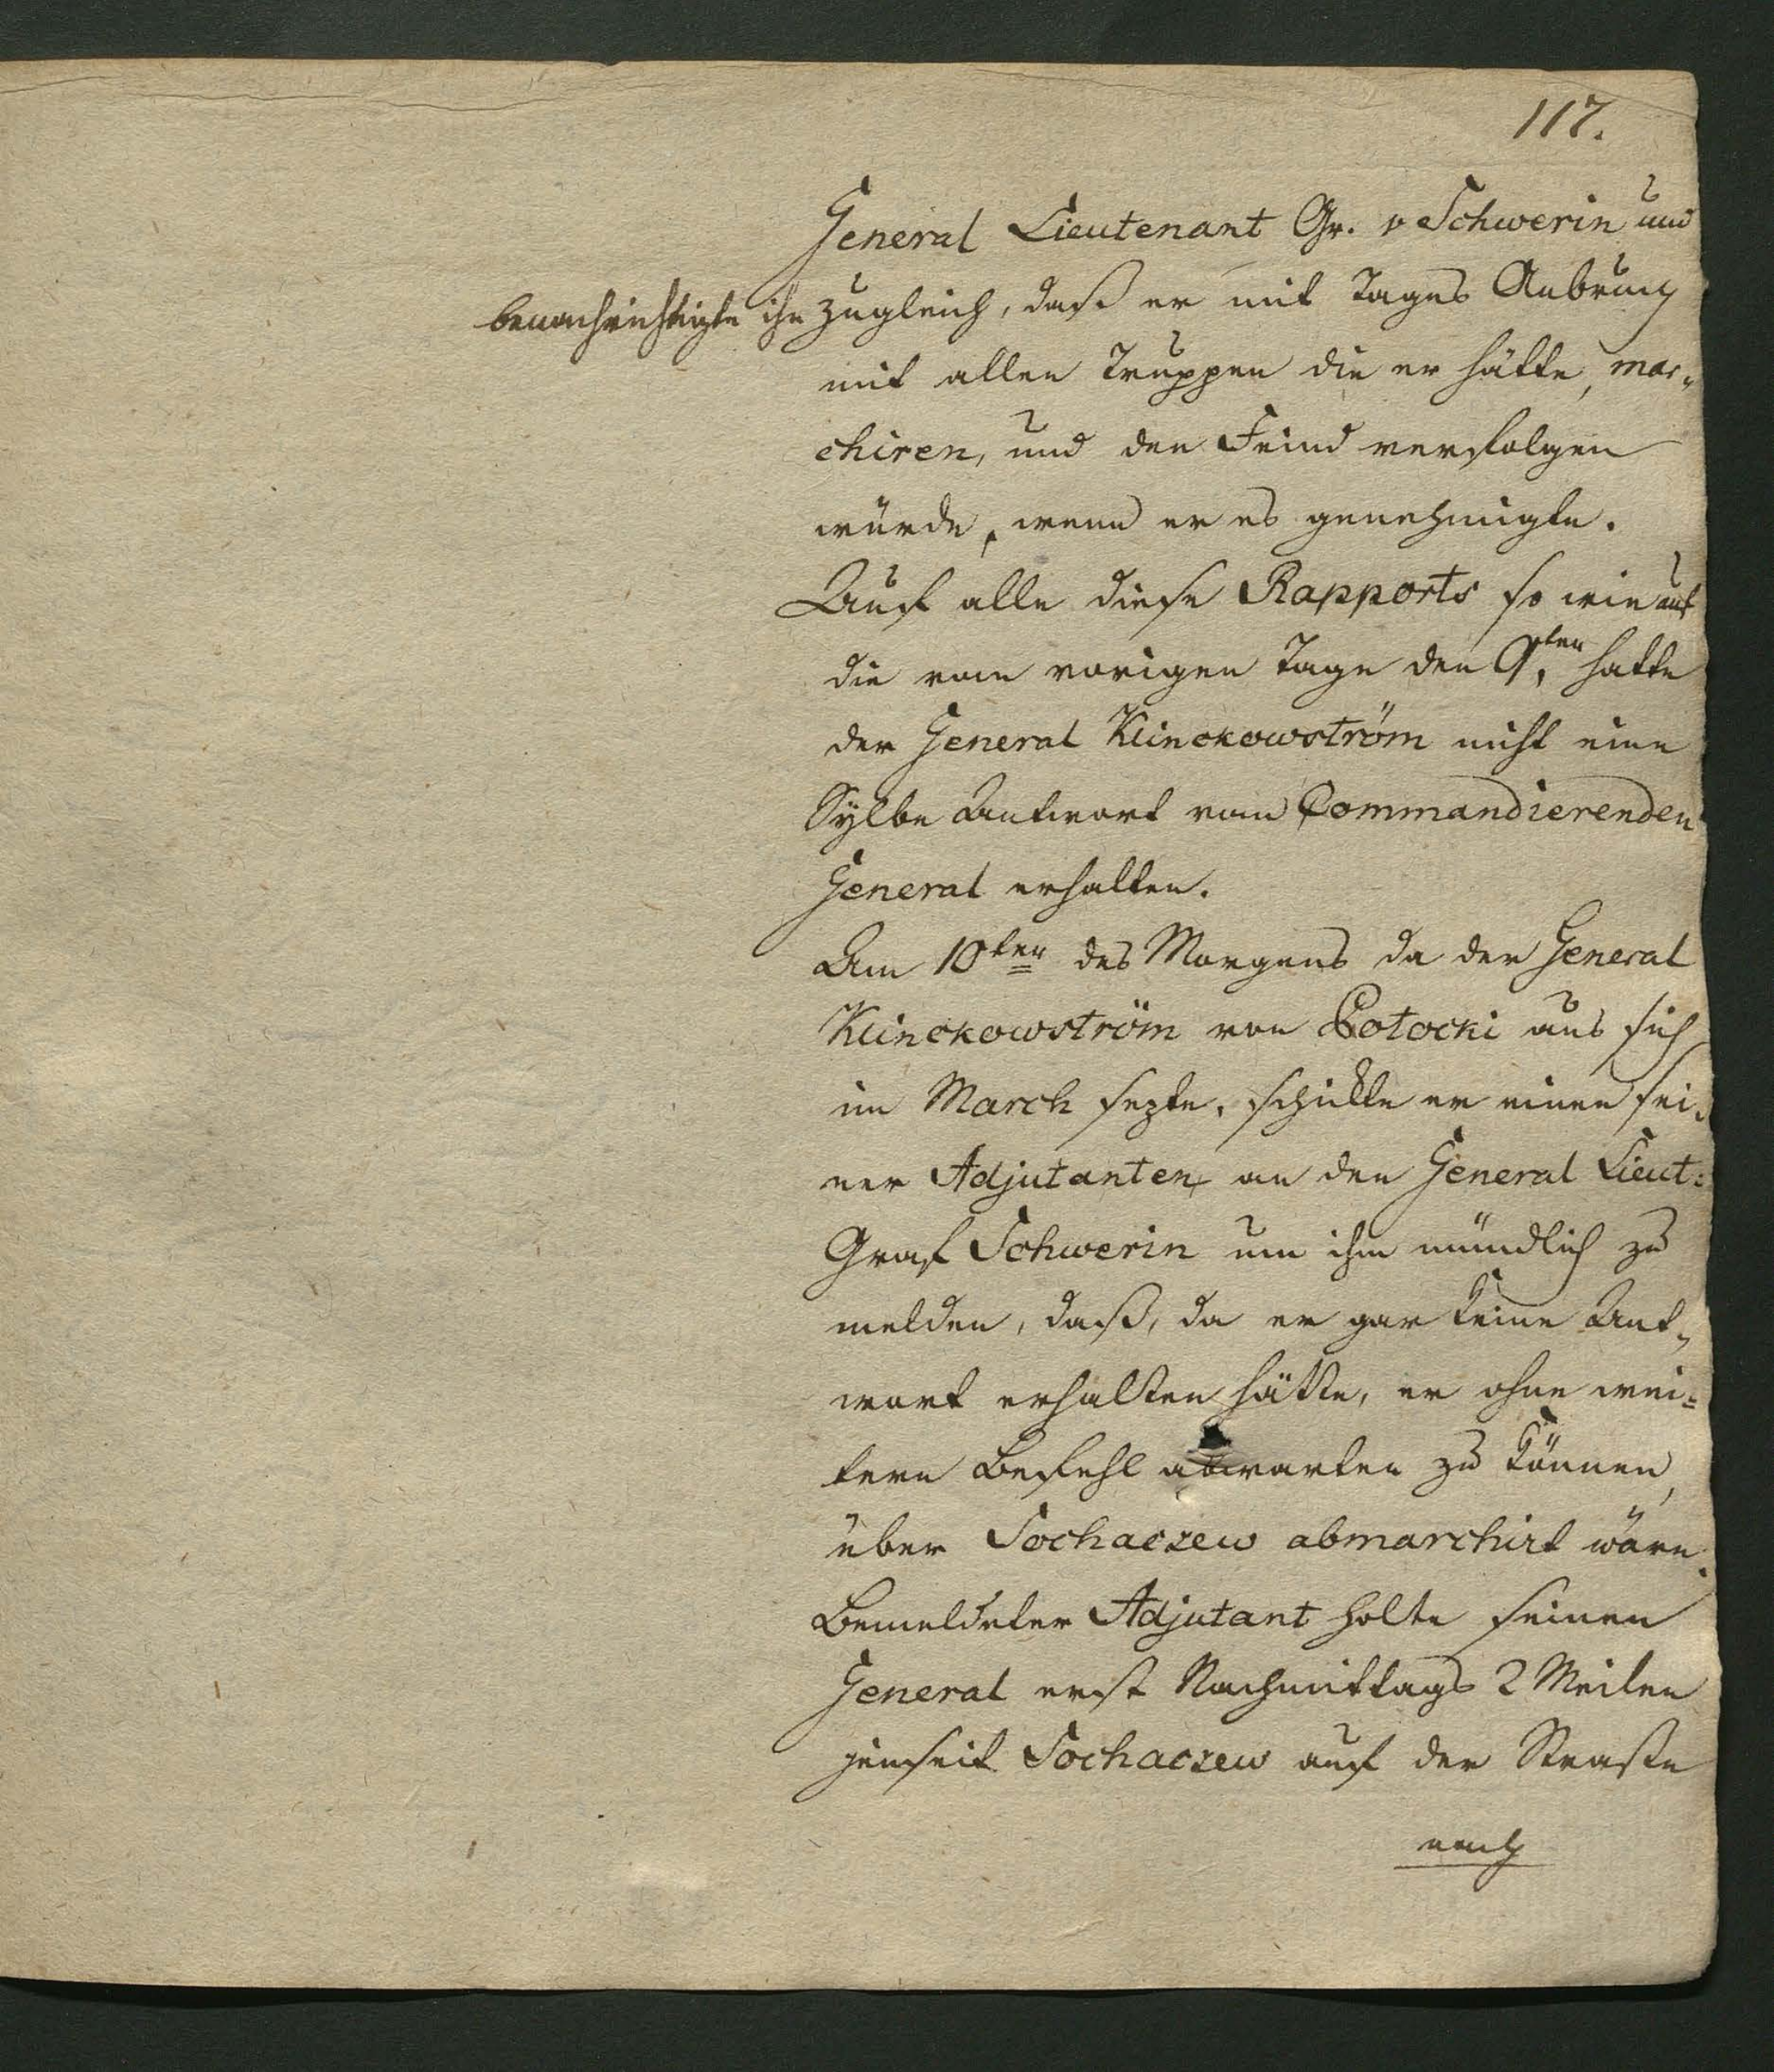 117.
General Lieutenant Gr. v Schwerin und
benachrichtigte ihn zugleich, daß er mit Tages Anbruch
mit allen Truppen die er hätte, mar-
chiren, und den Feind verfolgen
würde, wenn er es genehmigte.
Auf alle diese Rapports so wie auf
die vom vorigen Tage den 9ten, hatte
der General Klinckowström nicht eine
Sylbe Antwort vom Commandierenden
General erhalten.
Am 10ten des Morgens da der General
Klinckowström von Potocki aus sich
in March sezte, schikte er einen sei-
ner Adjutanten an den General Lieut:
Graf Schwerin um ihm mündlich zu
melden, daß, da er gar keine Ant-
wort erhalten hätte, er ohne wei=
tern Befehl abwarten zu können,
über Sochaczew abmarchirt wäre.
Bemeldeter Adjutant holte seinen
General erst Nachmittags 2 Meilen
jenseit Sochaczew auf der Straße
nach